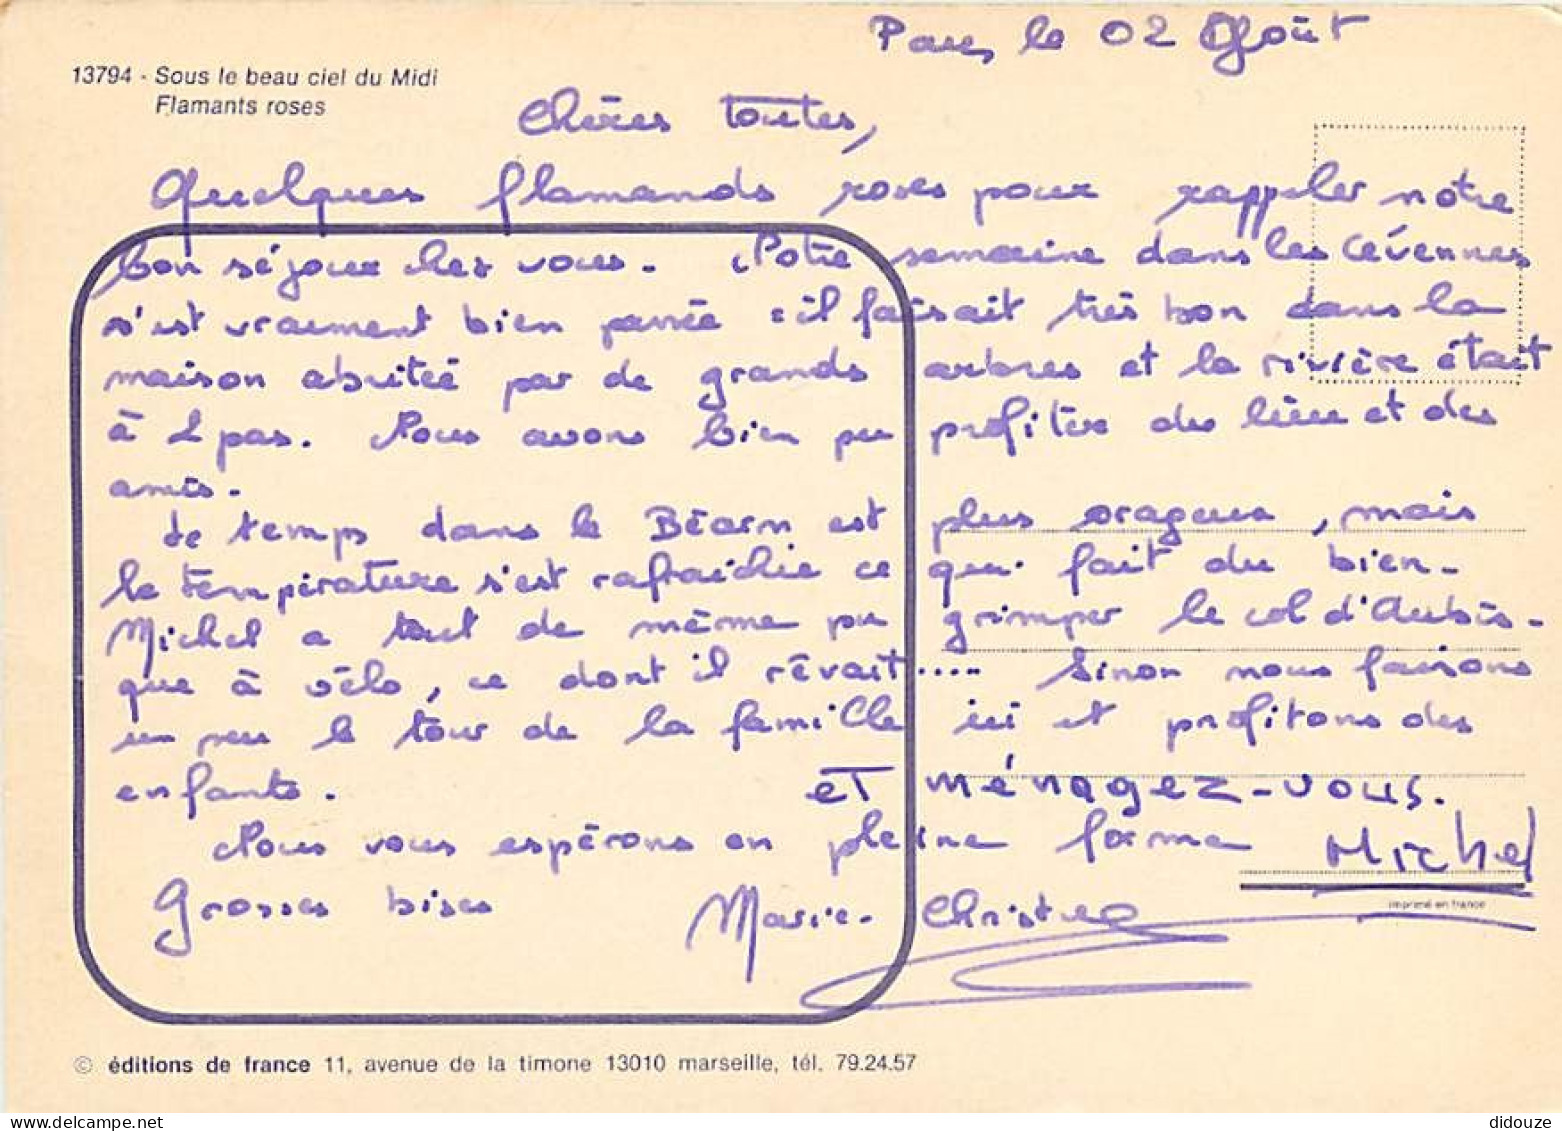 Paus le 02 Août
13794 - Sous le beau ciel du Midi
Flamants roses
Chères toutes,
Quelques flamands roses pour rappeler notre
bon séjour chez vous. Notre semaine dans les Cévennes
s'est vraiment bien passée : il faisait très bon dans la
maison abritée par de grands arbres et la rivière était
à 2 pas. Nous avons bien pu profiter du lieu et des
amis.
Le temps dans le Béarn est plus orageux, mais
la température s'est rafraichie ce qui fait du bien.
Michel a tout de même pu grimper le col d'Aubis-
que à vélo, ce dont il rêvait..... Sinon nous faisons
un peu le tour de la famille ici et profitons des
enfants. ET MÉNAGEZ-VOUS.
Nous vous espérons en pleine forme Michel
Grosses bises Marie-Christine
imprimé en france
© éditions de france 11, avenue de la timone 13010 marseille, tél. 79.24.57
delcampe.net
didouze